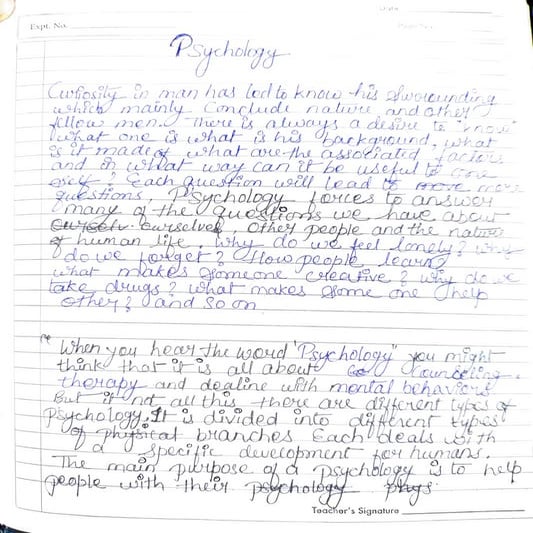 Date
Expt. No.
Page No.
Psychology
Curiosity in man has led to know his surrounding
which mainly conclude nature, and other
fellow men. There is always a desire to "know"
what one is what is his background, what
is it made of what are the associated factors
and in what way can it be useful to one
self? Each question will lead to move more
questions. Psychology forces to answer
many of the questions we have about
ourselv. ourselves, other people and the nature
of human life. Why do we feel lonely? why
do we forget? How people learn?
what makes someone creative? why do we
take drugs? what makes some one help
other? and so on
When you hear the word "Psychology" you might
think that it is all about counseling.
therapy and dealine with mental behaviors
But it not all this there are different types of
psychology. It is divided into different types
of physical branches Each deals with
a specific development for humans.
The main purpose of a psychology is to help
people with their psychology phys
Teacher's Signature